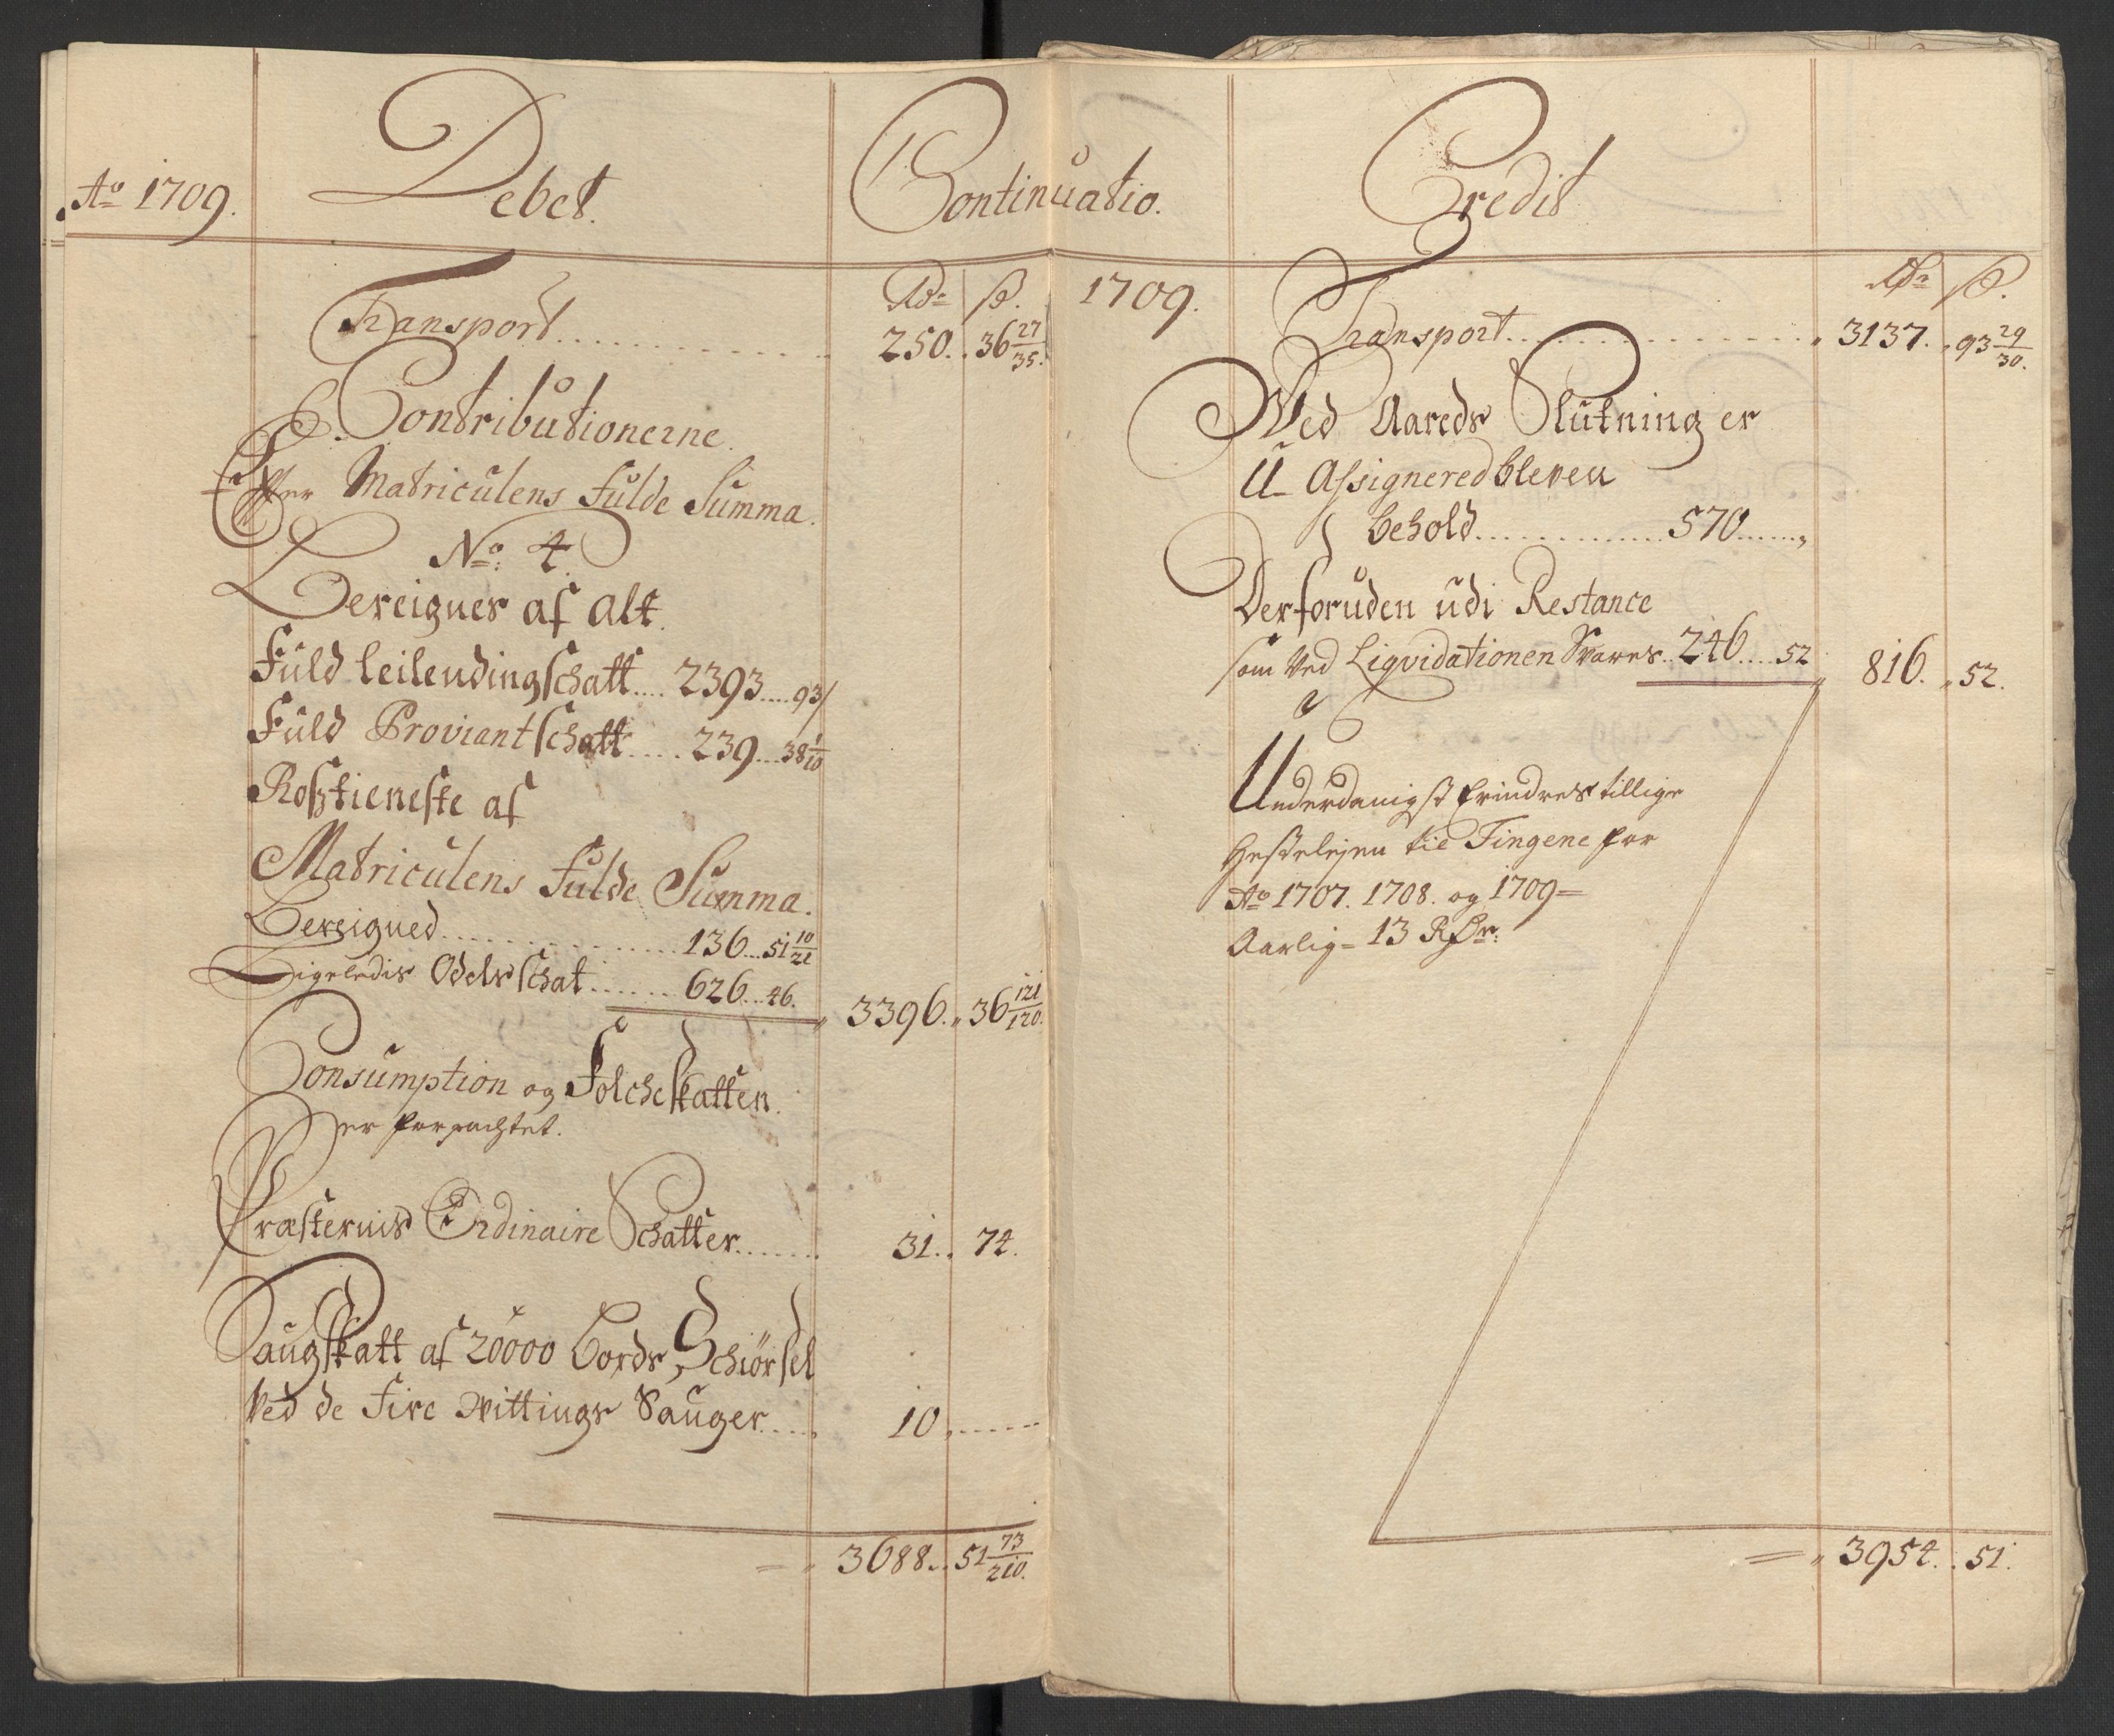 Ao 1709.
Debet.
Continuatio.
Rdr ß.
Transport 250. 36 27/35.
Contributionerne.
Effter Matriculens Fulde Summa.
No: 4.
Bereignes af alt.
Fuld leilendingschatt 2393 93/
Fuld Proviantschatt 239 38 1/10
Rosztieneste af
Matriculens Fulde Summa.
Bereigned 136 51 10/21
Ligeledis Odelsschat 626 46. 3396. 36 121/120.
Consumption og Folcheskatten.
er forpachtet.
Præsternis Ordinaire Schatter 31. 74.
Saugskatt af 20000 Bords Schiørsel
Ved de Fire Wittings Sauger 10
= 3688. 51 73/210.
Credit
1709.
Rdr ß.
Transport 3137. 93 29/30.
Ved Aareds Slutning er
U- Assignered bleven
behold 570
Derforuden udi Restance
som Ved Liqvidationen Svares 246 52 816. 52.
Underdanigst Erindres tillige
Hestelejen til Tingene for
Ao 1707. 1708. og 1709=
Aarlig= 13 Rdr:
= 3954. 51.